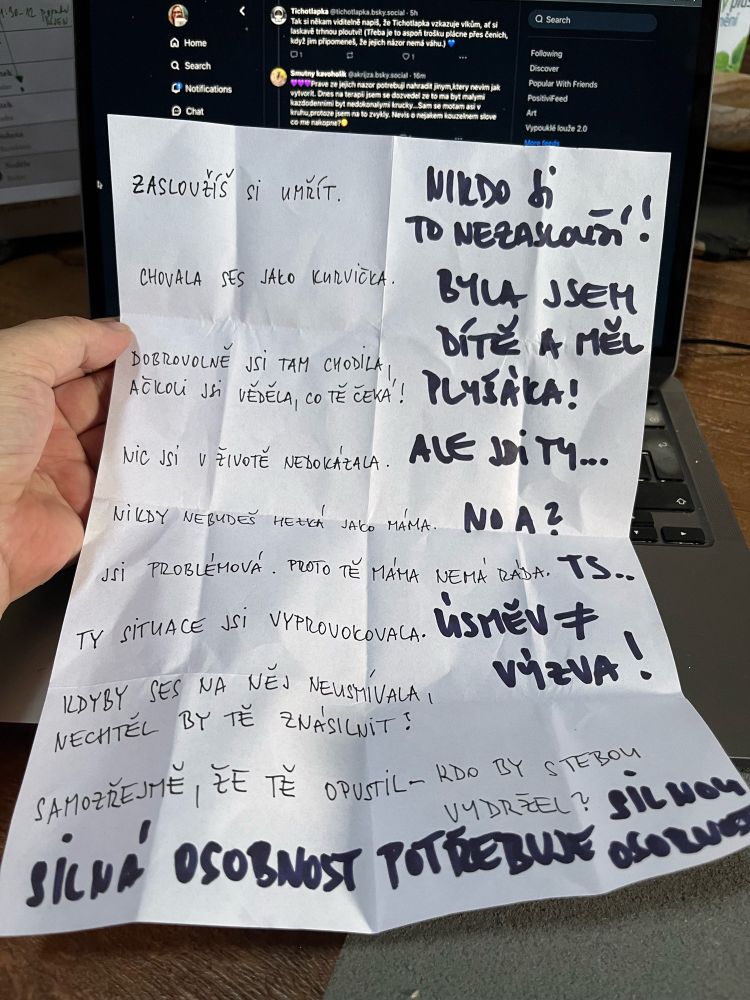 Tichotlapka @tichotlapka.bsky.social · 5h
Tak si někam viditelně napiš, že Tichotlapka vzkazuje vlkům, ať si
laskavě trhnou ploutví! (Třeba je to aspoň trošku plácne přes čenich,
když jim připomeneš, že jejich názor nemá váhu.) 💙
1
1
Smutny kavoholik @akrijza.bsky.social · 16m
💜💜💜Prave ze jejich nazor potrebuji nahradit jinym,ktery nevim jak
vytvorit. Dnes na terapii jsem se dozvedel ze to ma byt malymi
kazdodennimi byt nedokonalymi krucky...Sam se motam asi v
kruhu,protoze jsem na to zvykly. Nevis o nejakem kouzelnem slove
co me nakopne?
Home
Search
Notifications
Chat
Search
Following
Discover
Popular With Friends
PositiviFeed
Art
Vypouklé louže 2.0
More feeds
ZASLOUŽÍŠ SI UMŘÍT. NIKDO SI
TO NEZASLOUŽÍ!
CHOVALA SES JAKO KURVIČKA. BYLA JSEM
DÍTĚ A MĚL
DOBROVOLNĚ JSI TAM CHODILA,
AČKOLI JSI VĚDĚLA, CO TĚ ČEKÁ! PLYŠÁKA!
NIC JSI V ŽIVOTĚ NEDOKÁZALA. ALE JDI TY...
NIKDY NEBUDEŠ HEZKÁ JAKO MÁMA. NO A?
JSI PROBLÉMOVÁ. PROTO TĚ MÁMA NEMÁ RÁDA. TS..
TY SITUACE JSI VYPROVOKOVALA. ÚSMĚV ≠
VÝZVA!
KDYBY SES NA NĚJ NEUSMÍVALA,
NECHTĚL BY TĚ ZNÁSILNIT!
SAMOZŘEJMĚ, ŽE TĚ OPUSTIL – KDO BY S TEBOU
VYDRŽEL? SILNOU
SILNÁ OSOBNOST POTŘEBUJE OSOBNOST